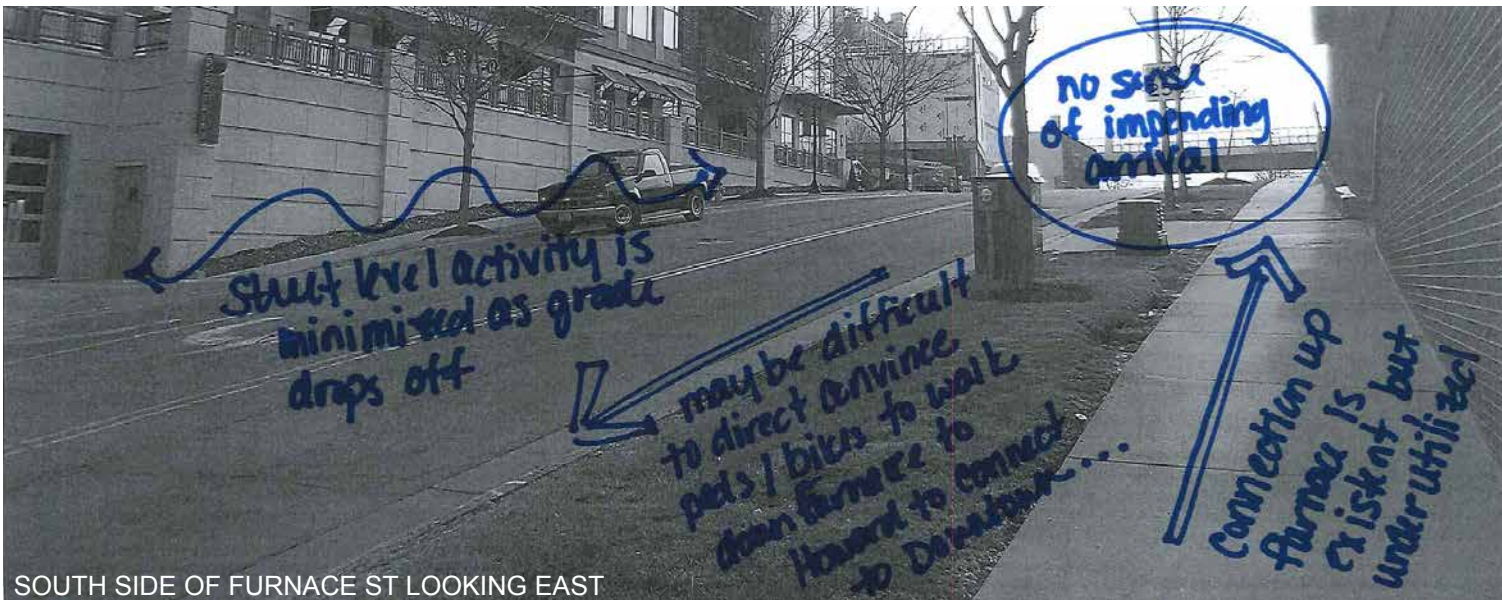 no sense
of impending
arrival
Street level activity is
minimized as grade
drops off
may be difficult
to direct convince
peds / bikes to walk
down Furnace to
Howard to connect
to Downtown....
Connection up
furnace is
existent but
underutilized
SOUTH SIDE OF FURNACE ST LOOKING EAST